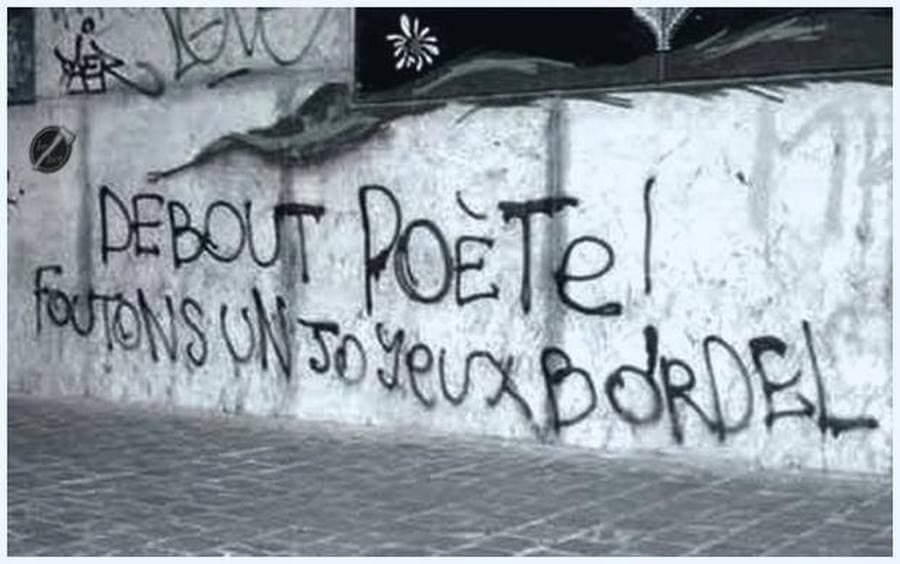 DEBOUT POÈTe!
FOUTONS UN JOYeux BORDEL